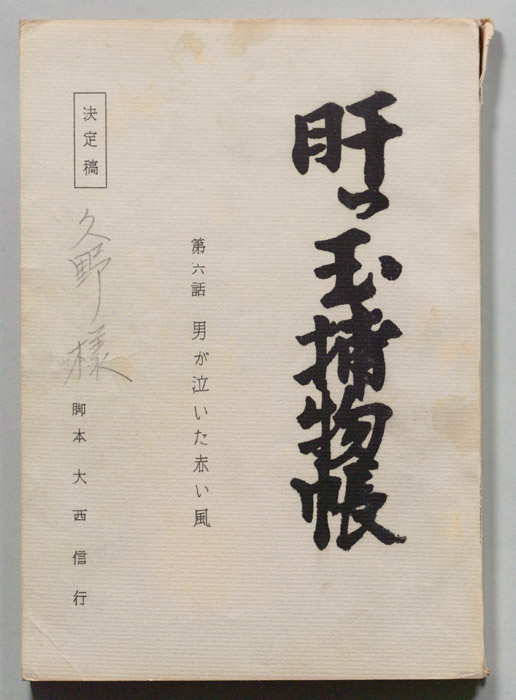 肝っ玉捕物帳
第六話 男が泣いた赤い風
決定稿
久野様
脚本 大西信行